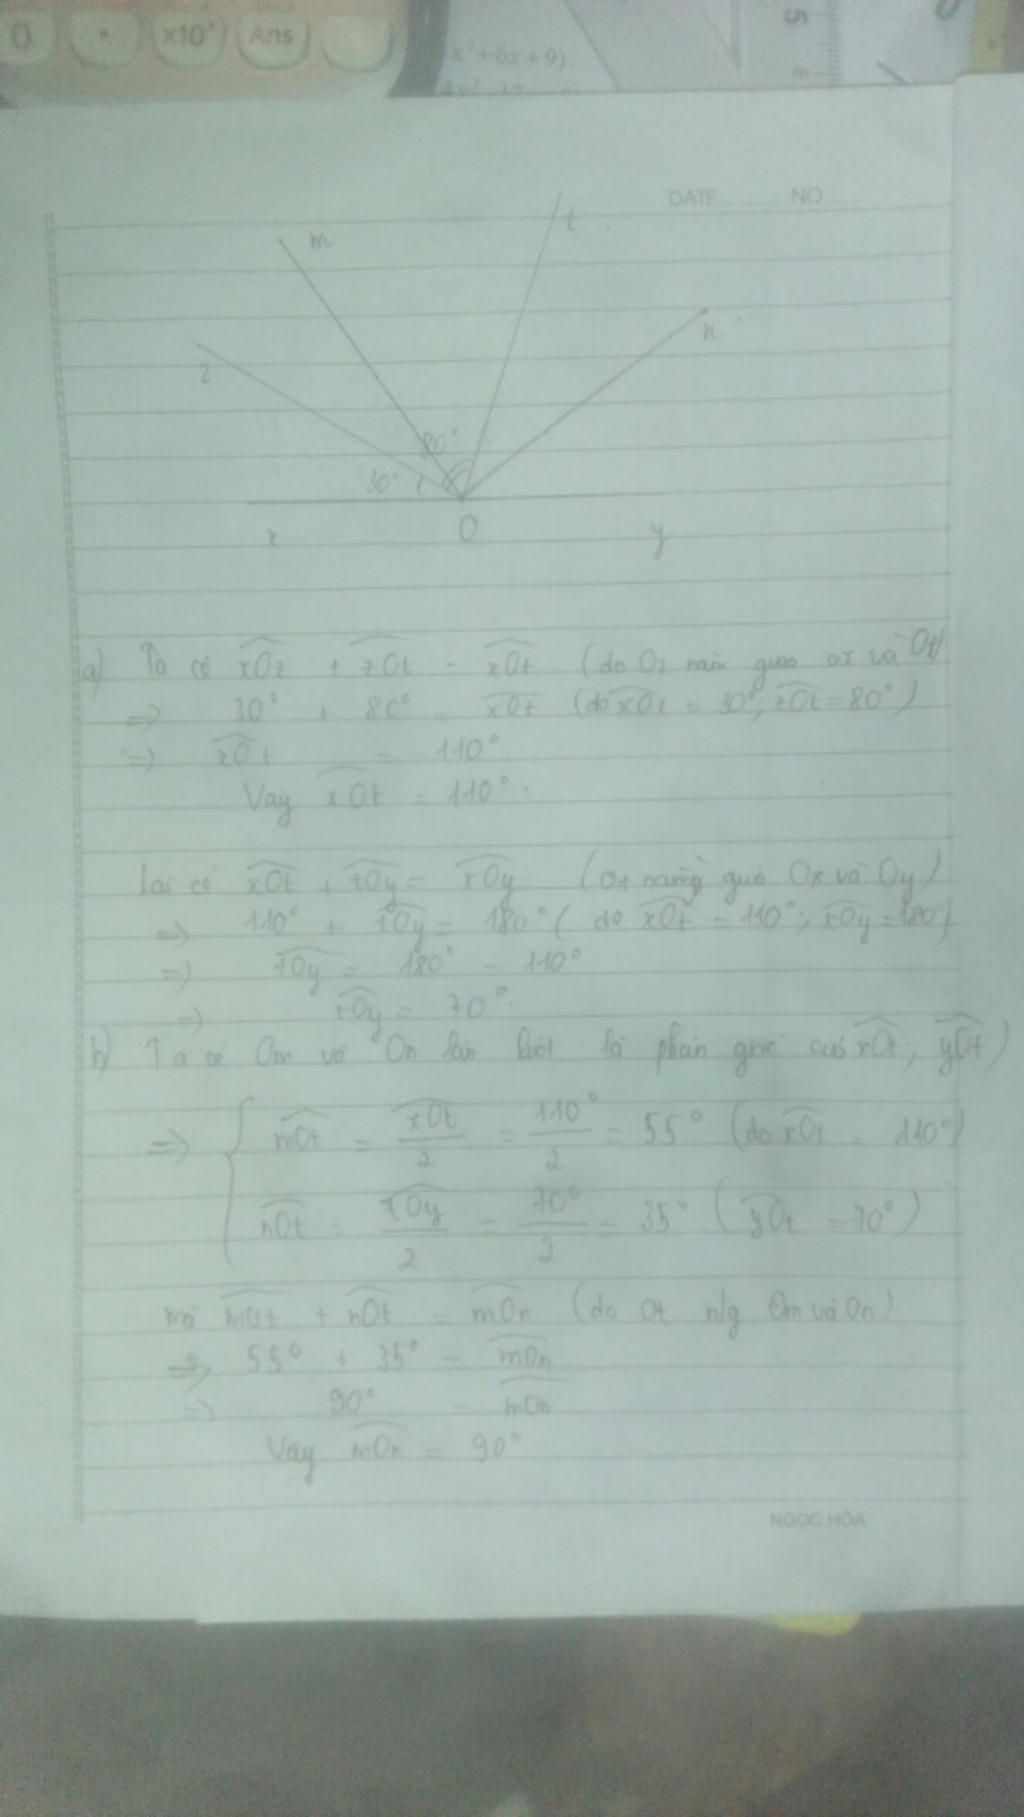 0 • x10ˣ Ans
x²+6x+9).
5
DATE NO
m t
n
z
80°
30°
x O y
a) Ta có xOz + zOt = xOt (do Oz nằm giữa Ox và Ot)
=> 30° + 80° = xOt (do xOz = 30°, zOt = 80°)
=> xOt = 110°
Vay xOt = 110°.
Lai có xOt + tOy = xOy (Ot nằm giữa Ox và Oy)
=> 110° + tOy = 180° (do xOt = 110°; xOy = 180°)
=> tOy = 180° - 110°
=> tOy = 70°.
b) Ta có Om và On lần lượt là phân giác của xOt, yOt)
=> { mOt = xOt/2 = 110°/2 = 55° (do xOt = 110°)
nOt = tOy/2 = 70°/2 = 35° (yOt = 70°)
mà mOt + nOt = mOn (do Ot n/g Om và On)
=> 55° + 35° = mOn
=> 90° = mOn
Vậy mOn = 90°
NGOC HOA